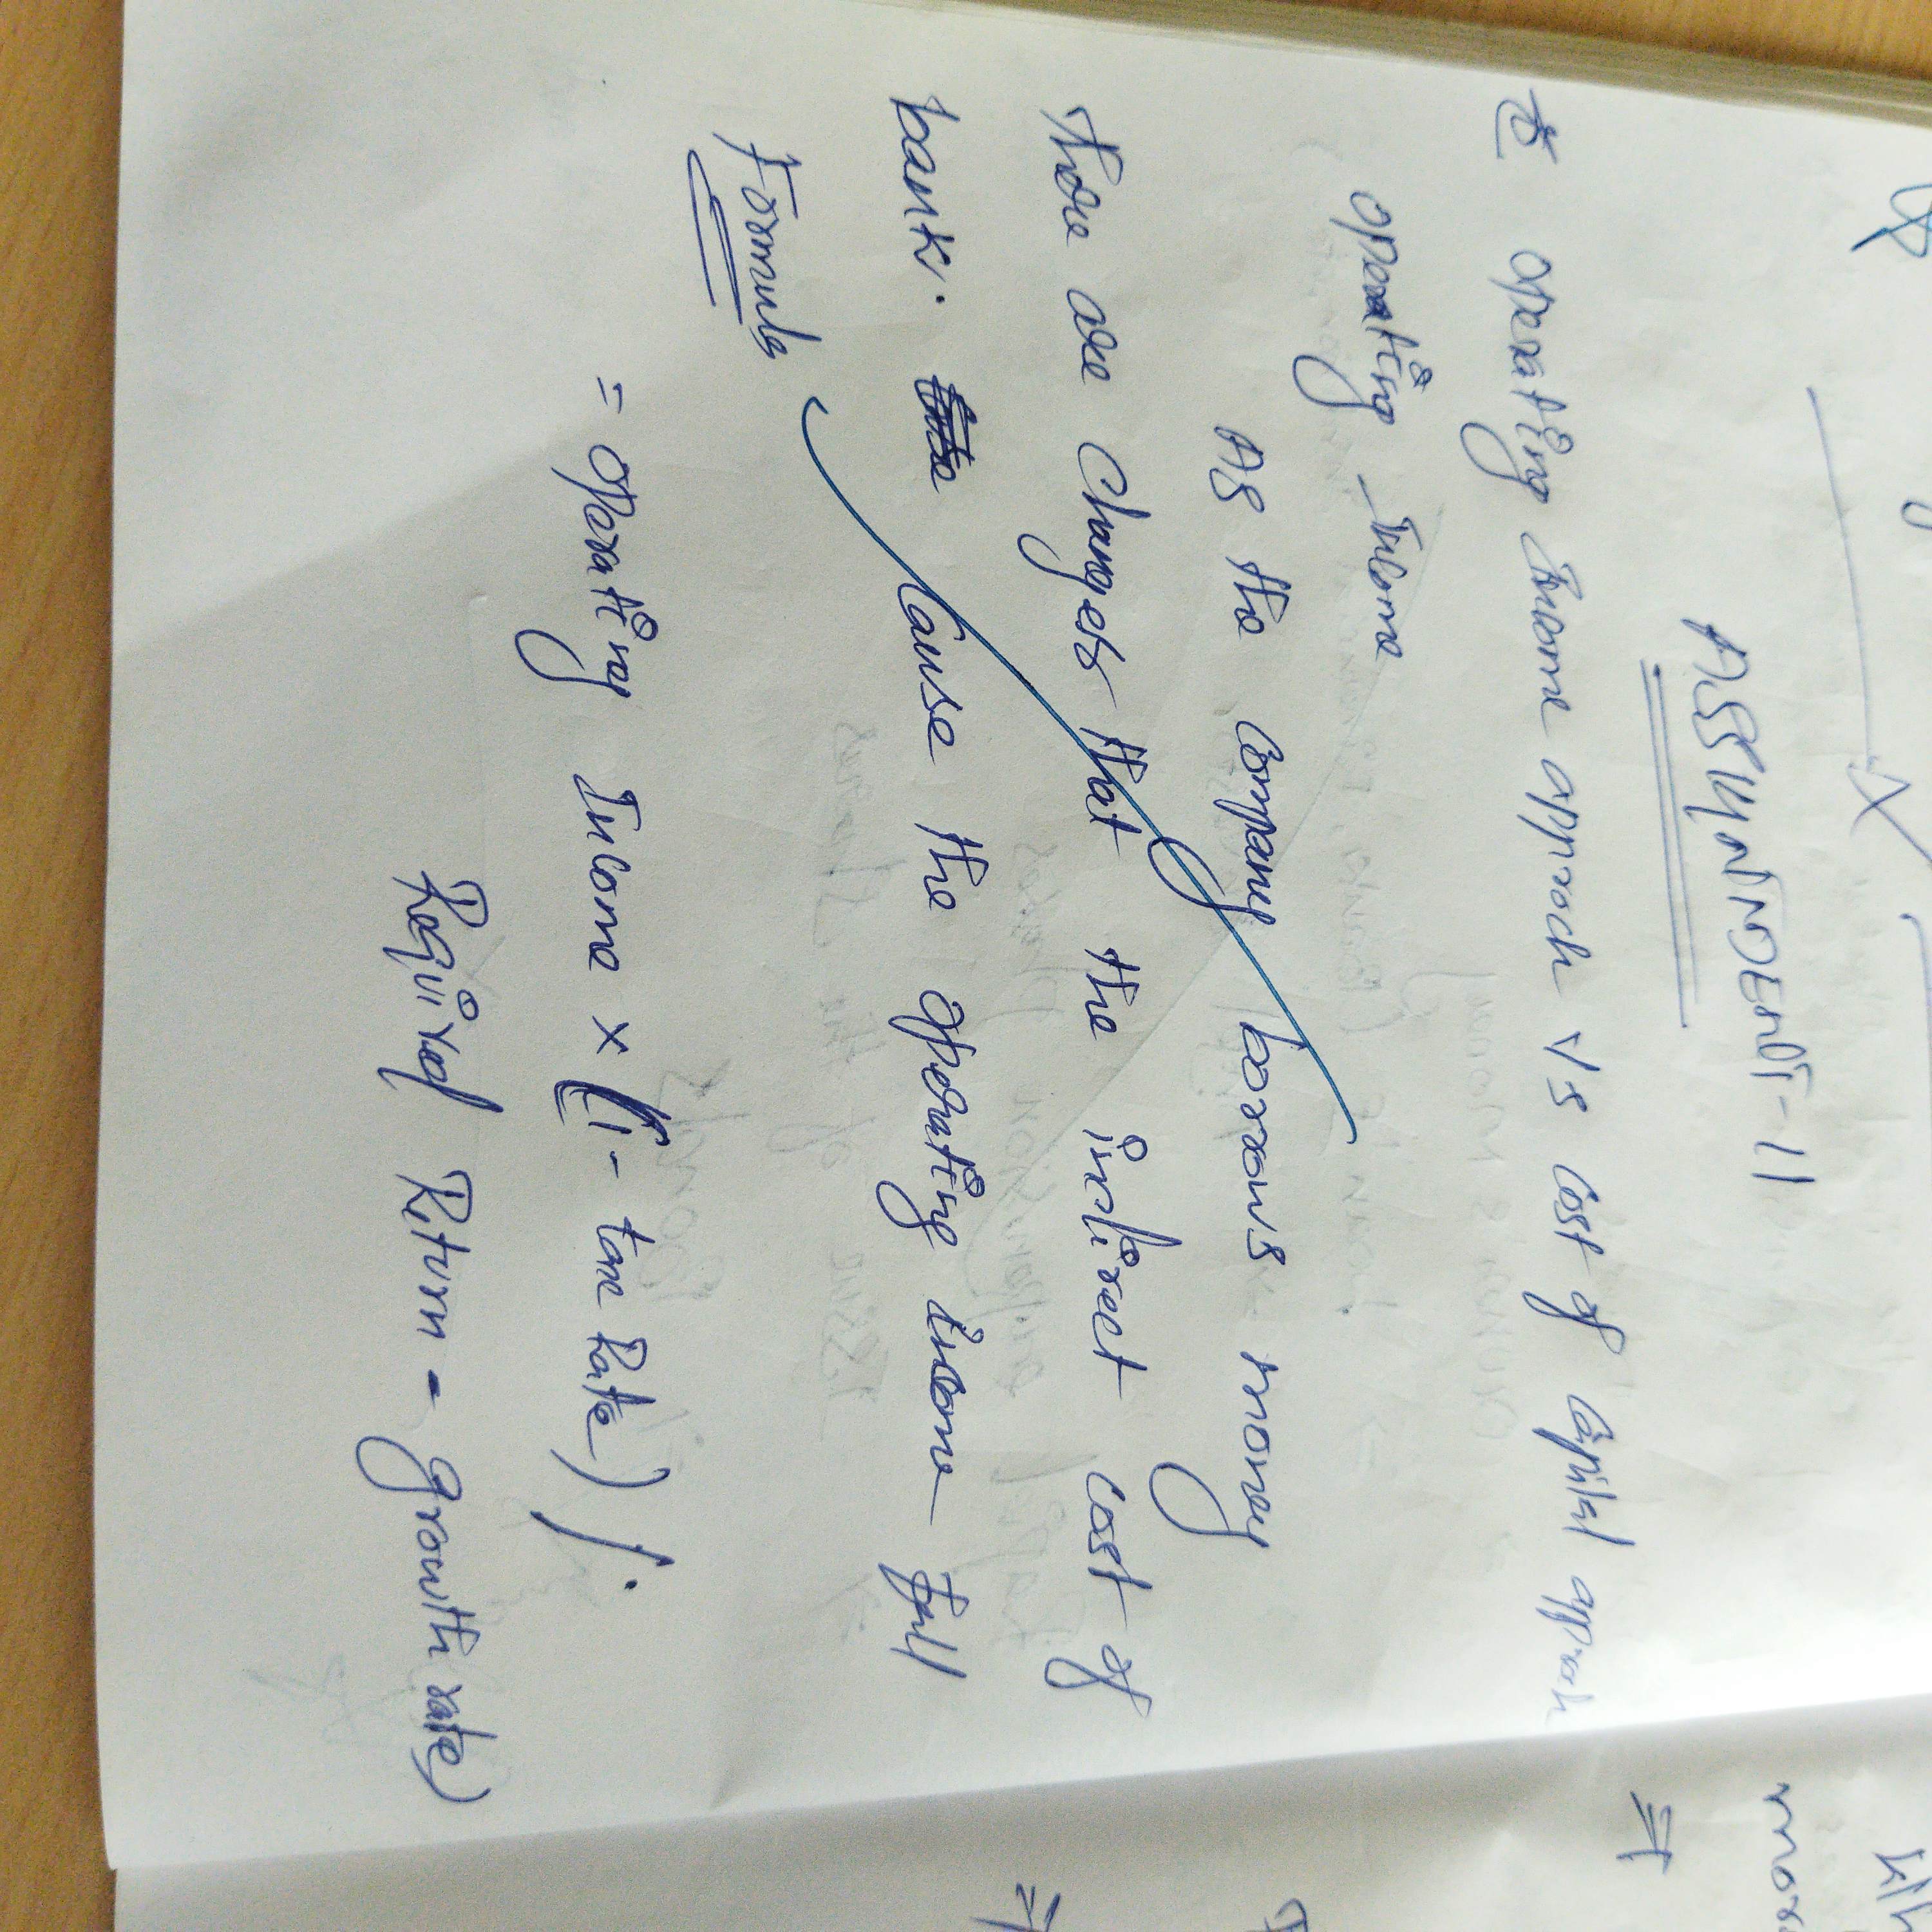 ASSIGNMENT-11
operating Income approch Vs Cost of Capital approh
operating Income
As the Company borrows money
there are Changes that the indirect cost of
bank. Cause the operating income fall
Formula
= operating Income x (1 - tax Rate) /.
Required Return - growth rate)